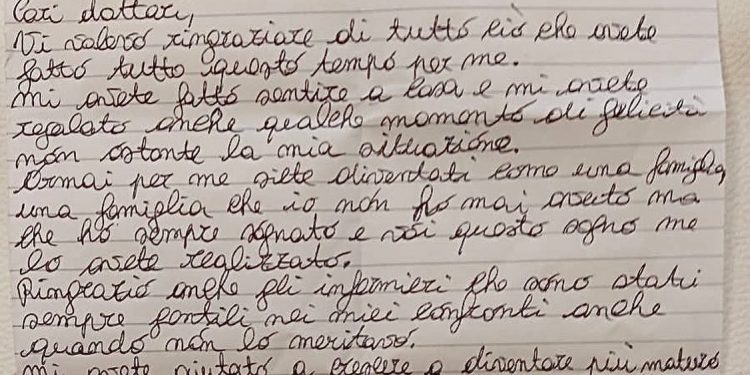 Cari dottori,
Vi volevo ringraziare di tutto ciò che avete
fatto tutto questo tempo per me.
mi avete fatto sentire a casa e mi avete
regalato anche qualche momento di felicità
non ostante la mia situazione.
Ormai per me siete diventati come una famiglia,
una famiglia che io non ho mai avuto ma
che ho sempre sognato e voi questo sogno me
lo avete realizzato.
Ringrazio anche gli infermieri che sono stati
sempre gentili nei miei confronti anche
quando non lo meritavo.
mi avete aiutato a crescere a diventare più maturo